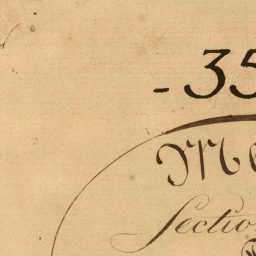 - 35
Mo
Sectio